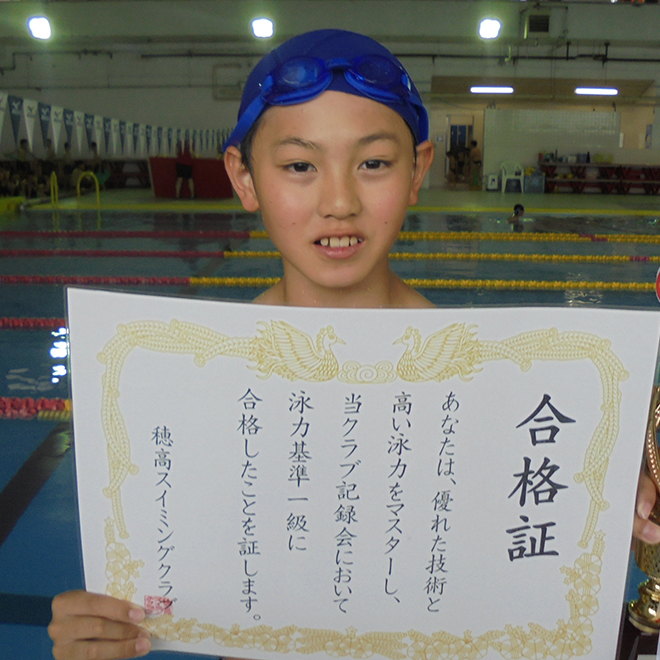 合格証
あなたは、優れた技術と
高い泳力をマスターし、
当クラブ記録会において
泳力基準一級に
合格したことを証します。
穂高スイミングクラブ